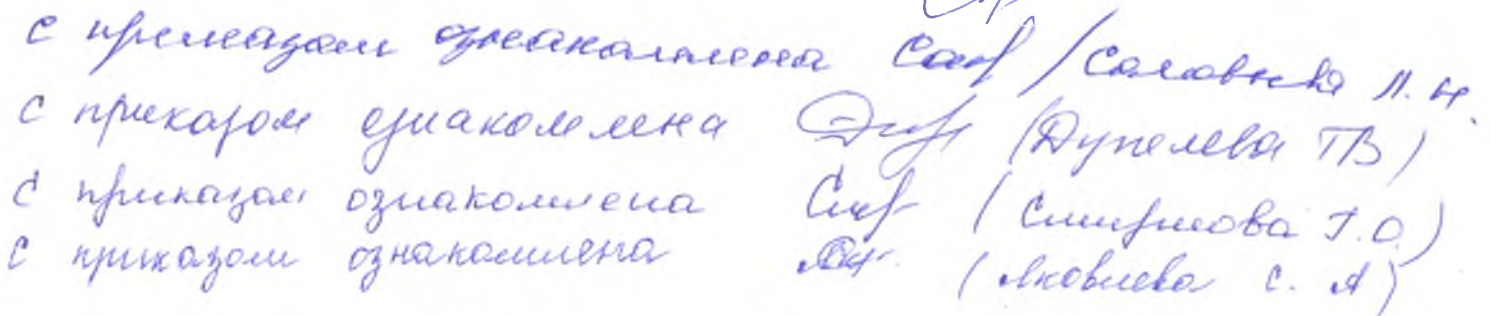 с приказом ознакомлена / Соловьева Л. Н.
с приказом ознакомлена (Дупелева ТВ)
с приказом ознакомлена (Смирнова Т.О.)
с приказом ознакомлена (Яковлева С. А)